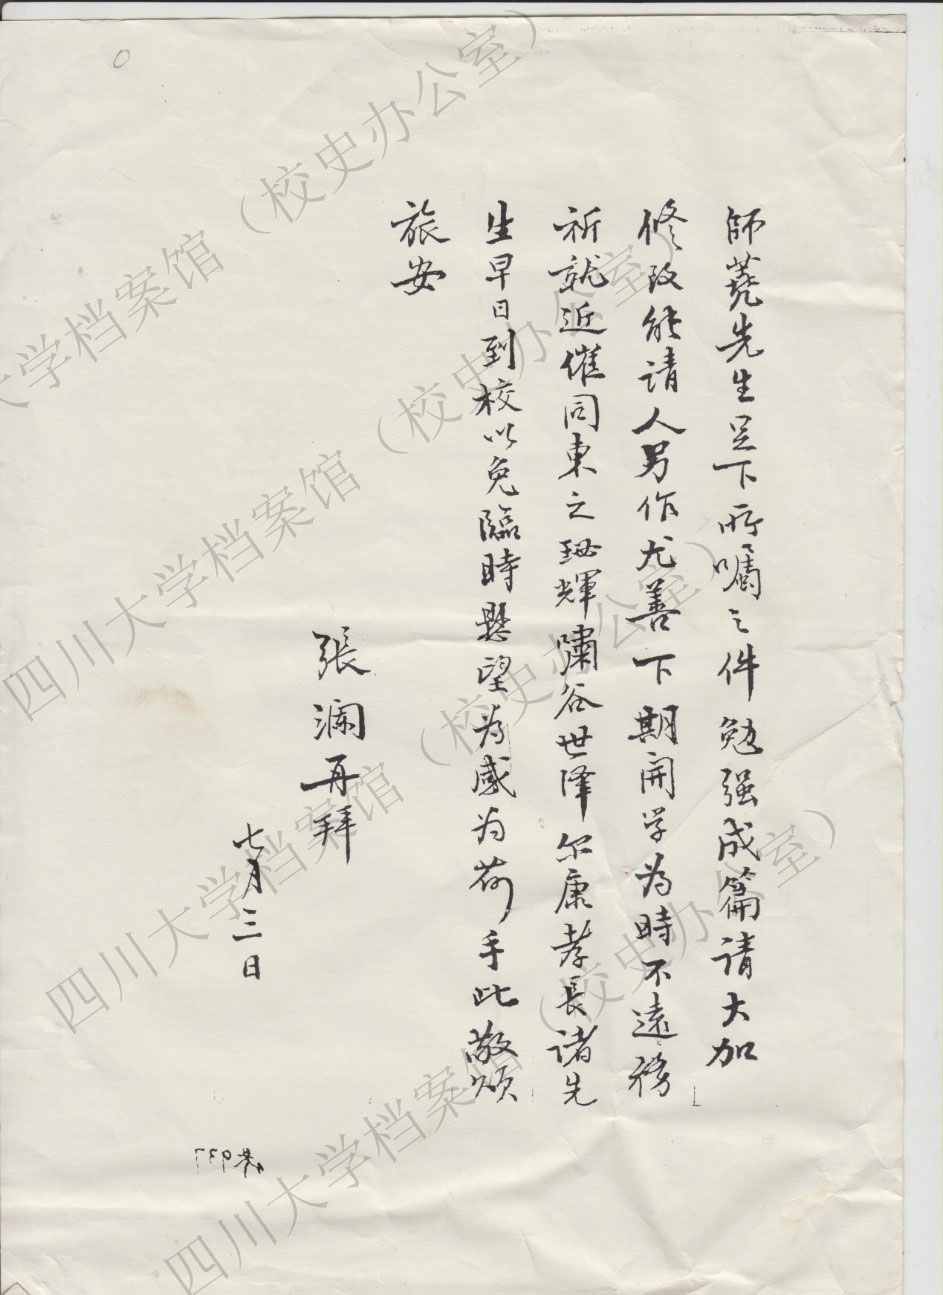 師蕘先生足下所囑之件勉强成篇請大加
修改能請人另作尤善下期開学為時不遠務
祈就近催同東之珌輝嘯谷世澤尔康孝長诸先
生早日到校以免臨時懸望為感为荷手此敬颂
旅安
張澜再拜
七月三日
四川大学档案馆（校史办公室）
四川大学档案馆（校史办公室）
四川大学档案馆（校史办公室）
四川大学档案馆（校史办公室）